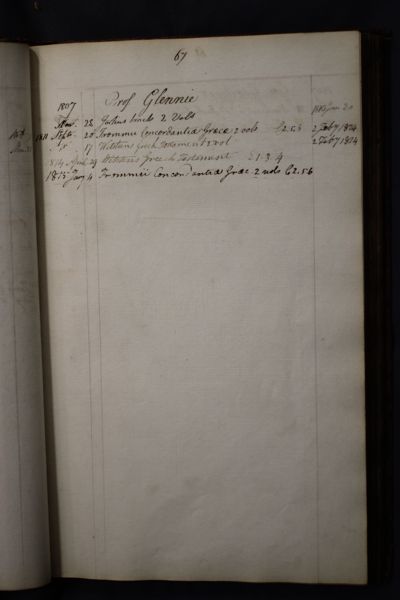 67
Prof Glennie
1807
Nov. 28 2 Vols 1813 Jan 20
1811 Feb 20 Trommii Concordantia Graca 2 vols C2.5.5 2 Feby 1814
17 Wetsteins Greek Testament 2 vol 2 Feby 1814
1814 April 29 Wetsteins Greek Testament C 1.3.4
1815 Jany 4 Trommii Concordantia Grac 2 vols C2.5.6